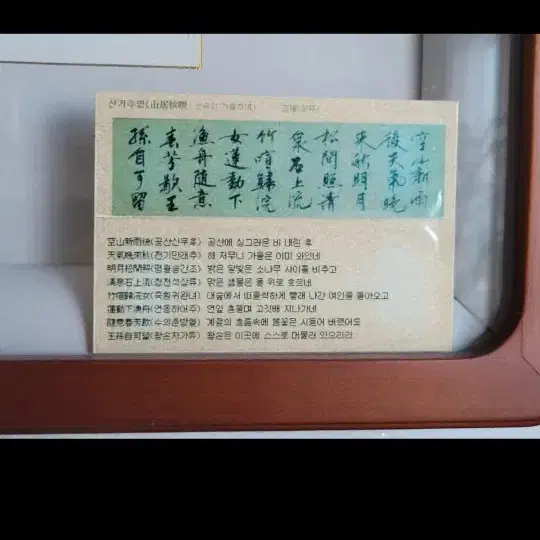 산거추명(山居秋暝 산속의 가을저녁) 王維(왕유)
空山新雨
後天氣晚
來秋明月
松間照清
泉石上流
竹喧歸浣
女蓮動下
漁舟隨意
春芳歇王
孫自可留
空山新雨後(공산신우후) 공산에 싱그러운 비 내린 후
天氣晩來秋(천기만래추) 해 저무니 가을은 이미 와있네
明月松間照(명월송간조) 밝은 달빛은 소나무 사이를 비추고
淸泉石上流(청천석상류) 맑은 샘물은 돌 위로 흐르네
竹喧歸浣女(죽훤귀완녀) 대숲에서 떠들썩하게 빨래 나간 여인들 돌아오고
蓮動下漁舟(연동하어주) 연잎 흔들며 고깃배 지나가네
隨意春芳歇(수의춘방헐) 계절의 흐름속에 봄꽃은 시들어 버렸어도
(왕손자가류) 왕손은 이곳에 스스로 머물러 있으리라